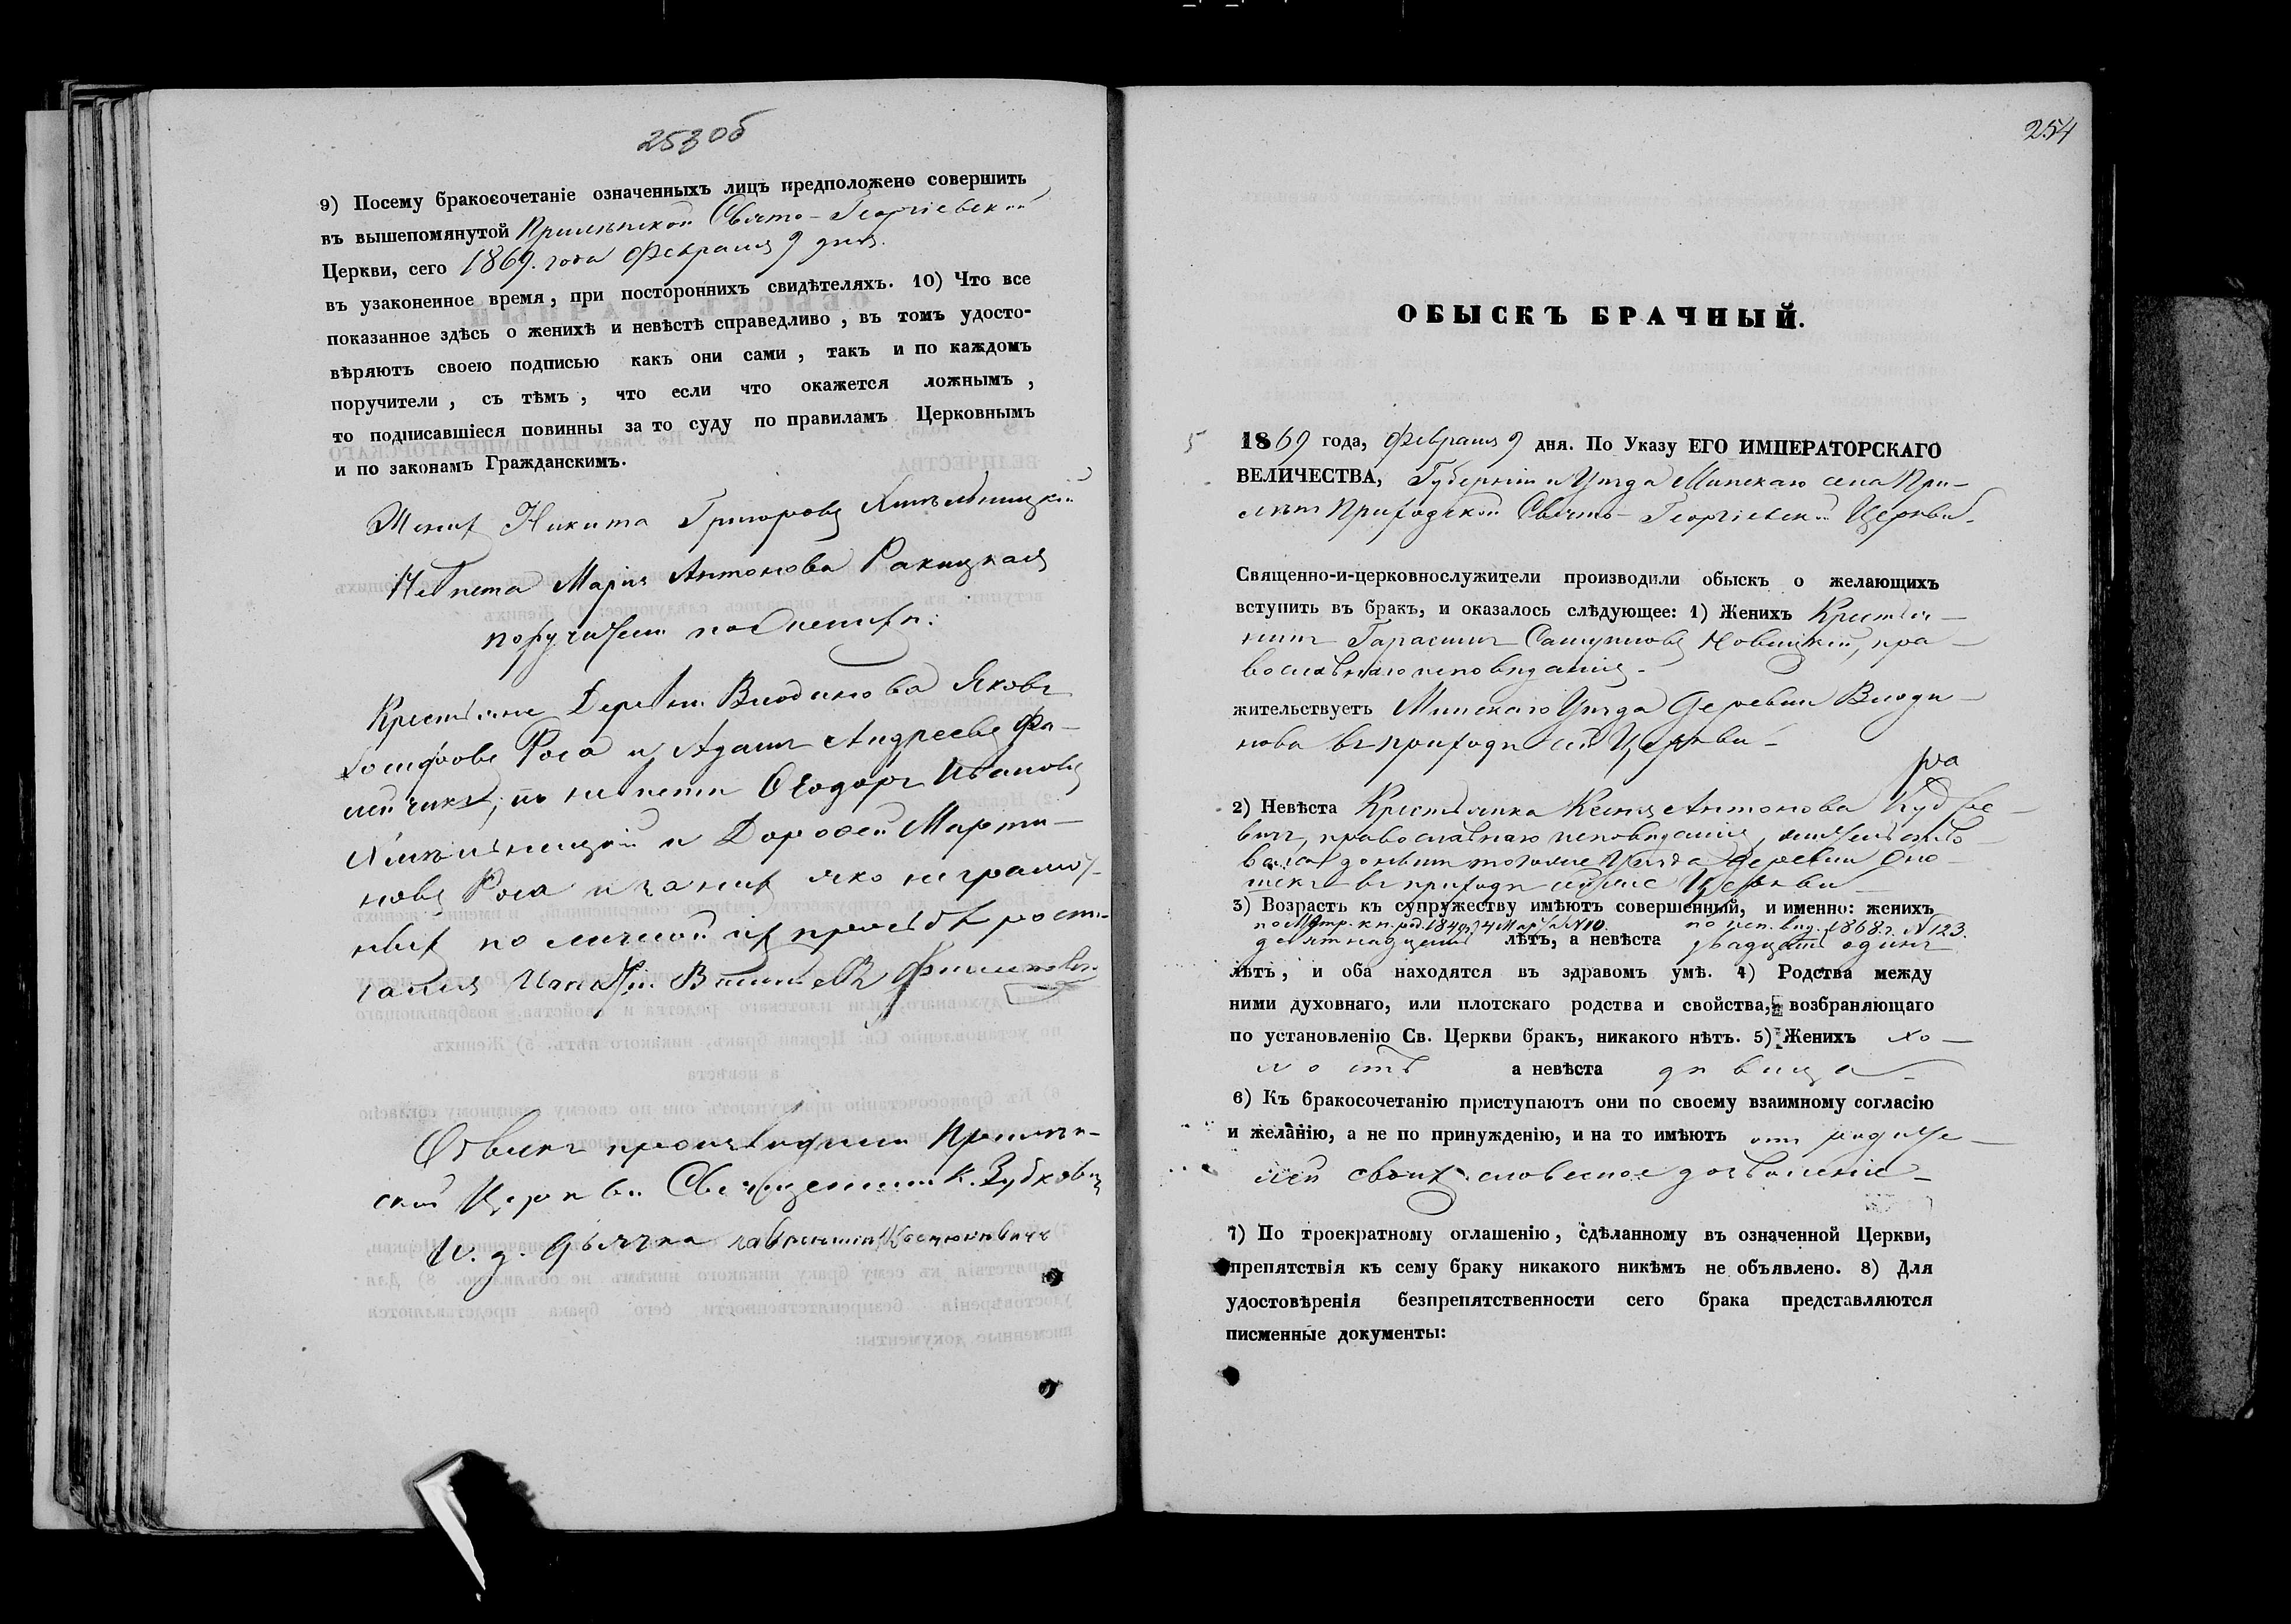 253об
9) Посему бракосочетаніе означенныхъ лицъ предположено совершить
въ вышепомянутой Прилѣпской Свято-Георгіевской
Церкви, сего 1869. года Февраля 9 дня.
въ узаконенное время, при постороннихъ свидѣтеляхъ. 10) Что все
показанное здѣсь о женихѣ и невѣстѣ справедливо, въ томъ удосто-
вѣряютъ своею подписью какъ они сами, такъ и по каждомъ
поручители, съ тѣмъ, что если что окажется ложнымъ,
то подписавшіеся повинны за то суду по правиламъ Церковнымъ
и по законамъ Гражданскимъ.
Женихъ Никита Григоровъ
Невѣста Марія Антонова Ракицкая
поручители по женихѣ:
Крестьяне Деревни Яковъ
Іосифовъ Роса и Адамъ Андреевъ
по невѣстѣ Ѳеодоръ Ивановъ
и Дороѳей Марти-
новъ Роса а за нихъ яко неграмот-
ныхъ по личной ихъ просьбѣ роспи-
сался
Обыскъ производили Прилѣп-
ской Церкви Священникъ К. Зубковичъ
И. д. дьячка Лаврентій
254
ОБЫСКЪ БРАЧНЫЙ.
5 1869 года, Февраля 9 дня. По Указу ЕГО ИМПЕРАТОРСКАГО
ВЕЛИЧЕСТВА, Губерніи и Уѣзда Минскаго села При-
лѣпъ Приходской Свято-Георгіевской Церкви.
Священно-и-церковнослужители производили обыскъ о желающихъ
вступить въ бракъ, и оказалось слѣдующее: 1) Женихъ Крестья-
нинъ Гарасимъ Самуиловъ Новицкій, пра-
вославнаго исповѣданія.
жительствуетъ Минскаго Уѣзда деревни
въ приходѣ сей Церкви
2) Невѣста Крестьянка Ксенія Антонова
православнаго исповѣданія, жительство-
вала донынѣ того же Уѣзда деревни
въ приходѣ сей же Церкви
3) Возрастъ къ супружеству имѣютъ совершенный, и именно: женихъ
по Метр. кн. род. 1849 г. 4 Марта №10. по исп. вѣд. 1868 г. №123.
девятнадцать лѣтъ, а невѣста двадцать одинъ
лѣтъ, и оба находятся въ здравомъ умѣ. 4) Родства между
ними духовнаго, или плотскаго родства и свойства, возбраняющаго
по установленію Св. Церкви бракъ, никакого нѣтъ. 5) Женихъ хо-
лостъ а невѣста дѣвица
6) Къ бракосочетанію приступаютъ они по своему взаимному согласію
и желанію, а не по принужденію, и на то имѣютъ отъ родите-
лей своихъ словесное дозволеніе
7) По троекратному оглашенію, сдѣланному въ означенной Церкви,
препятствія къ сему браку никакого никѣмъ не объявлено. 8) Для
удостовѣренія безпрепятственности сего брака представляются
писменные документы: